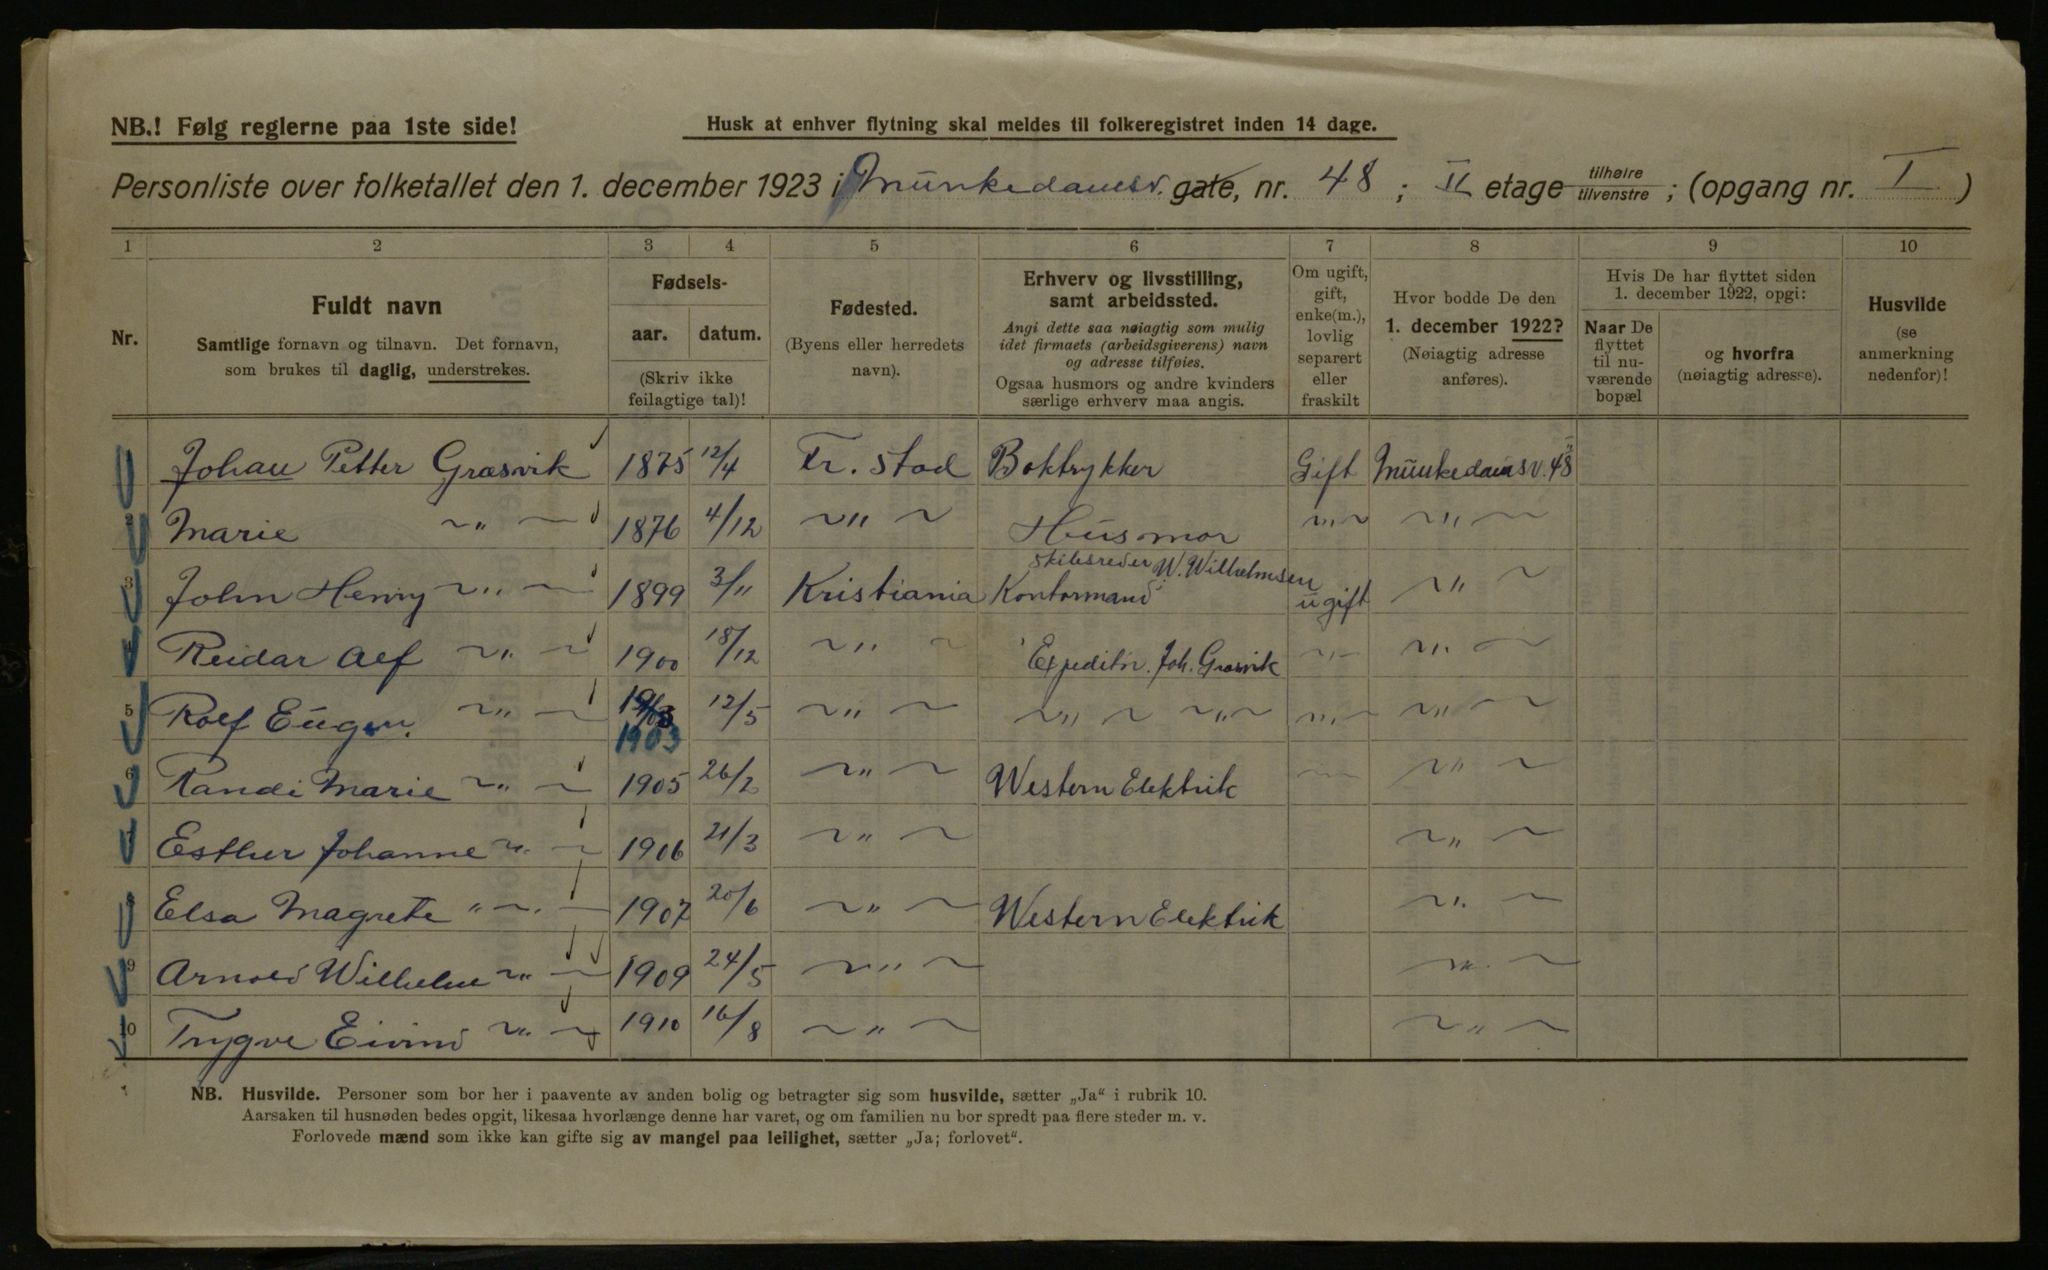 NB.! Følg reglerne paa 1ste side!
Husk at enhver flytning skal meldes til folkeregistret inden 14 dage.
Personliste over folketallet den 1. december 1923 i Munkedamsv. gate, nr. 48 ; II etage tilhøire tilvenstre ; (opgang nr. I )
1 2 3 4 5 6 7 8 9 10
Nr.
Fuldt navn
Samtlige fornavn og tilnavn. Det fornavn,
som brukes til daglig, understrekes.
Fødsels-
aar. datum.
(Skriv ikke
feilagtige tal)!
Fødested.
(Byens eller herredets
navn).
Erhverv og livsstilling,
samt arbeidssted.
Angi dette saa nøiagtig som mulig
idet firmaets (arbeidsgiverens) navn
og adresse tilføies.
Ogsaa husmors og andre kvinders
særlige erhverv maa angis.
Om ugift,
gift,
enke(m.),
lovlig
separert
eller
fraskilt
Hvor bodde De den
1. december 1922?
(Nøiagtig adresse
anføres).
Hvis De har flyttet siden
1. december 1922, opgi:
Naar De
flyttet
til nu-
værende
bopæl
og hvorfra
(nøiagtig adresse).
Husvilde
(se
anmerkning
nedenfor)!
Johan Petter Græsvik 1875 12/4 Fr. stad Boktrykker Gift Munkedamsv. 48 II
2 Marie ~ „ ~ 1876 4/12 ~ „ ~ Husmor ~ „ ~ ~ „ ~
Skibsreder W. Wilhelmsen
3 John Henry ~ „ ~ 1899 3/11 Kristiania Kontormand ugift ~ „ ~
4 Reidar Alf ~ „ ~ 1900 18/12 ~ „ ~ Expeditør. Joh. Græsvik ~ „ ~ ~ „ ~
5 Rolf Eugen. ~ „ ~ 1903 12/5 ~ „ ~ ~ „ ~ ~ „ ~ ~ „ ~ ~ „ ~
1903
6 Randi Marie ~ „ ~ 1905 26/2 ~ „ ~ Western Elektrik ~ „ ~ ~ „ ~
7 Esther Johanne ~ „ ~ 1906 21/3 ~ „ ~ ~ „ ~
8 Elsa Magrete ~ „ ~ 1907 20/6 ~ „ ~ Western Elektrik ~ „ ~
9 Arnold Wilhelm ~ „ ~ 1909 24/5 ~ „ ~ ~ „ ~
10 Trygve Eivind ~ „ ~ 1910 16/8 ~ „ ~ ~ „ ~
NB. Husvilde. Personer som bor her i paavente av anden bolig og betragter sig som husvilde, sætter „Ja“ i rubrik 10.
Aarsaken til husnøden bedes opgit, likesaa hvorlænge denne har varet, og om familien nu bor spredt paa flere steder m. v.
Forlovede mænd som ikke kan gifte sig av mangel paa leilighet, sætter „Ja; forlovet“.